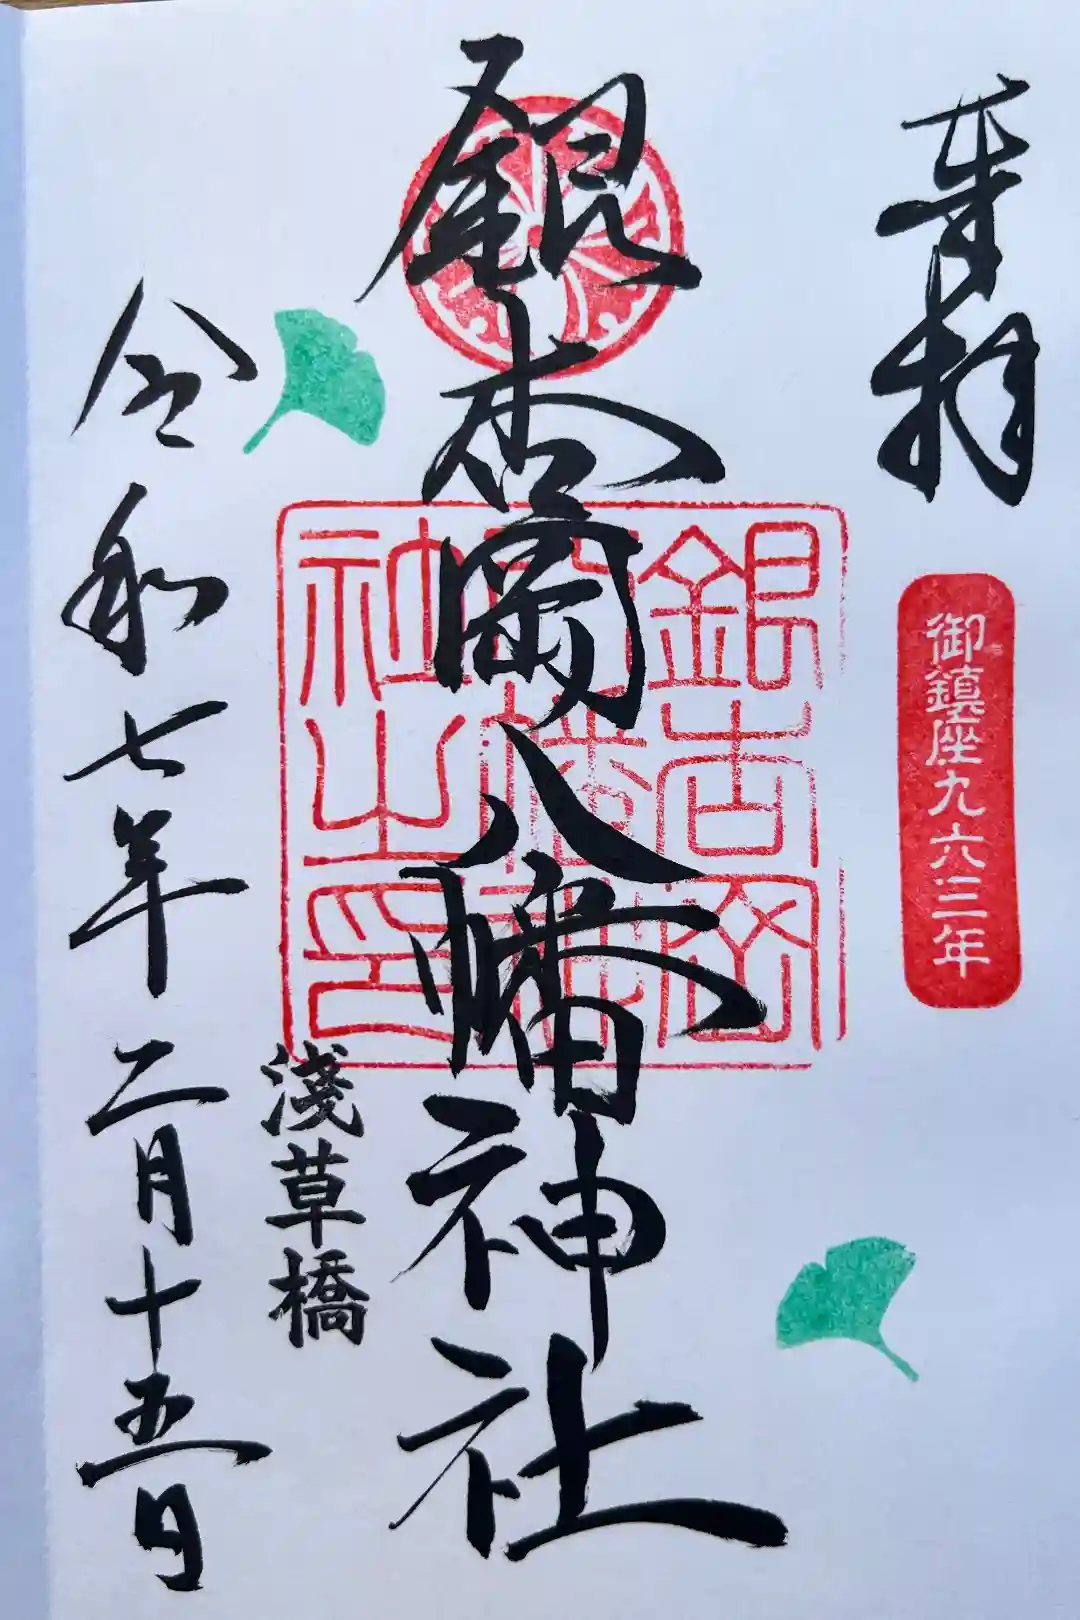 奉拝
御鎮座九六三年
銀杏岡八幡神社
銀杏岡八幡神社之印
淺草橋
令和七年二月十五日